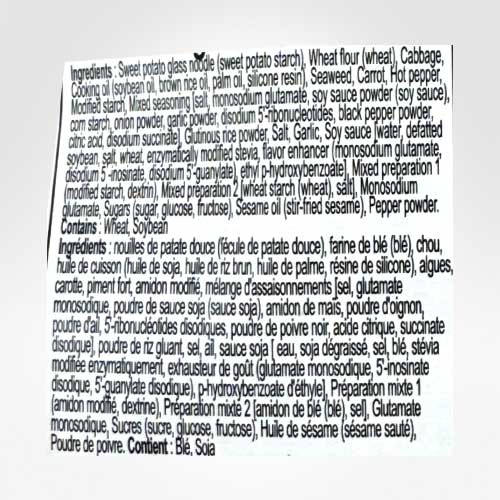 Ingredients : Sweet potato glass noodle (sweet potato starch), Wheat flour (wheat), Cabbage,
Cooking oil (soybean oil, brown rice oil, palm oil, silicone resin), Seaweed, Carrot, Hot pepper,
Modified starch, Mixed seasoning [salt, monosodium glutamate, soy sauce powder (soy sauce),
corn starch, onion powder, garlic powder, disodium 5'-ribonucleotides, black pepper powder,
citric acid, disodium succinate], Glutinous rice powder, Salt, Garlic, Soy sauce [water, defatted
soybean, salt, wheat, enzymatically modified stevia, flavor enhancer (monosodium glutamate,
disodium 5'-inosinate, disodium 5'-guanylate), ethyl p-hydroxybenzoate], Mixed preparation 1
(modified starch, dextrin), Mixed preparation 2 [wheat starch (wheat), salt], Monosodium
glutamate, Sugars (sugar, glucose, fructose), Sesame oil (stir-fried sesame), Pepper powder.
Contains : Wheat, Soybean
Ingrédients : nouilles de patate douce (fécule de patate douce), farine de blé (blé), chou,
huile de cuisson (huile de soja, huile de riz brun, huile de palme, résine de silicone), algues,
carotte, piment fort, amidon modifié, mélange d'assaisonnements [sel, glutamate
monosodique, poudre de sauce soja (sauce soja), amidon de maïs, poudre d'oignon,
poudre d'ail, 5'-ribonucléotides disodiques, poudre de poivre noir, acide citrique, succinate
disodique], poudre de riz gluant, sel, ail, sauce soja [ eau, soja dégraissé, sel, blé, stévia
modifiée enzymatiquement, exhausteur de goût (glutamate monosodique, 5'-inosinate
disodique, 5'-guanylate disodique), p-hydroxybenzoate d'éthyle], Préparation mixte 1
(amidon modifié, dextrine), Préparation mixte 2 [amidon de blé (blé), sel], Glutamate
monosodique, Sucres (sucre, glucose, fructose), Huile de sésame (sésame sauté),
Poudre de poivre. Contient : Blé, Soja